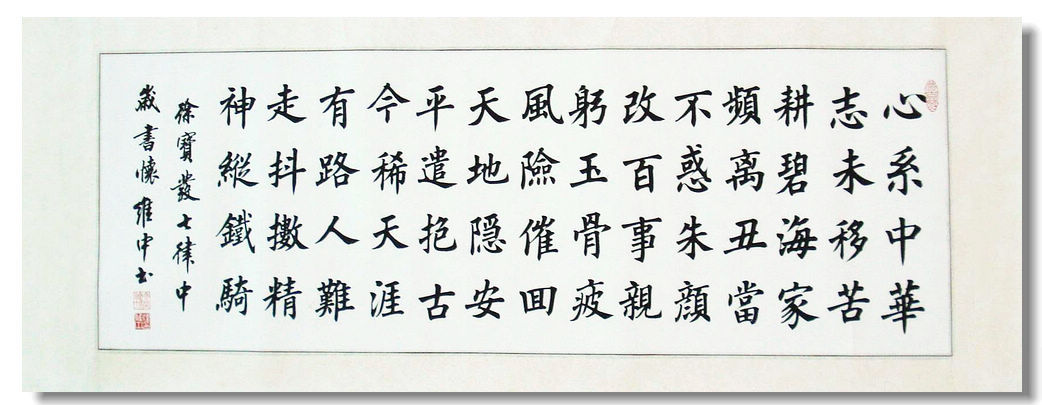 心系中華
志未移苦
耕碧海家
頻离丑當
不惑朱顔
改百事親
躬玉骨疲
風險催回
天地隐安
平遣抱古
今稀天涯
有路人難
走抖擻精
神縱鐵騎
徐寳發七律中
歲書懷維中书